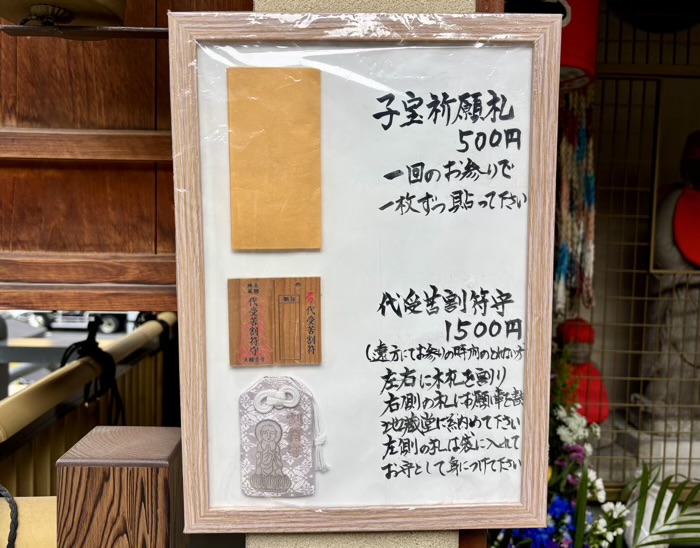 子宝祈願札
500円
一回のお参りで
一枚ずつ貼って下さい
代受苦割符守
1500円
(遠方にてお参りの時間のとれない方
左右に木札を割り
右側の札にお願事を書き
地蔵堂に納めて下さい
左側の札は袋に入れて
お守として身につけて下さい
代受苦割符守
代受苦割符